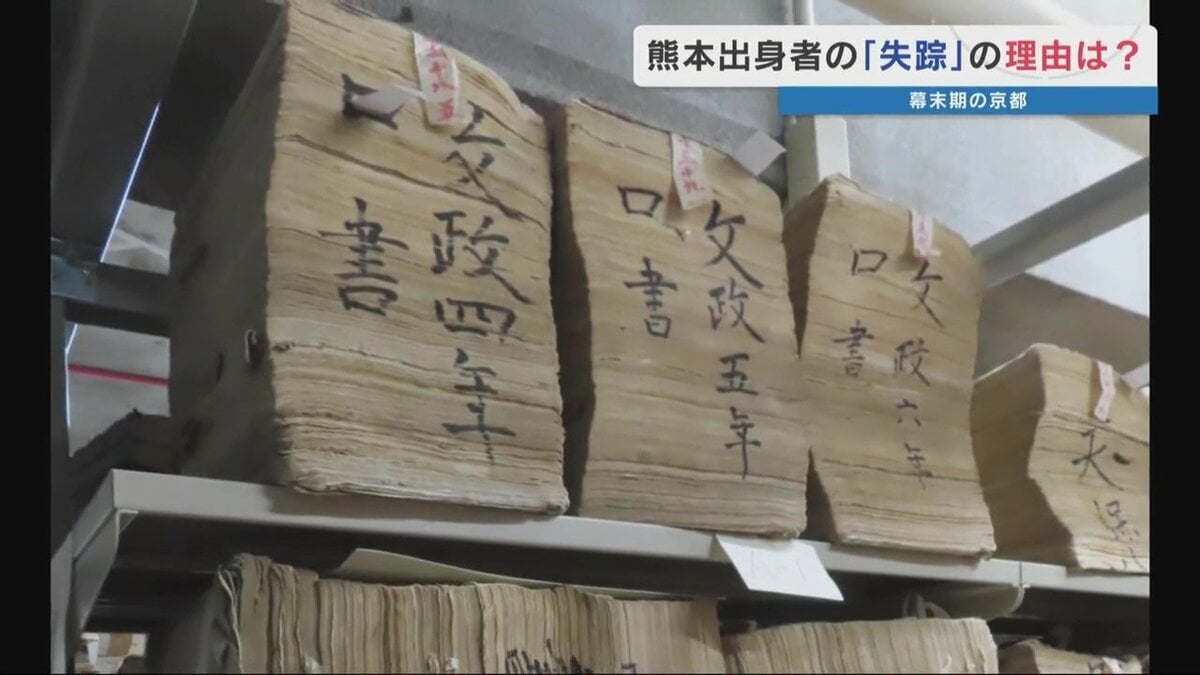 熊本出身者の「失踪」の理由は?
幕末期の京都
文政四年
口書
文政五年
口書
文政六年
口書
天保